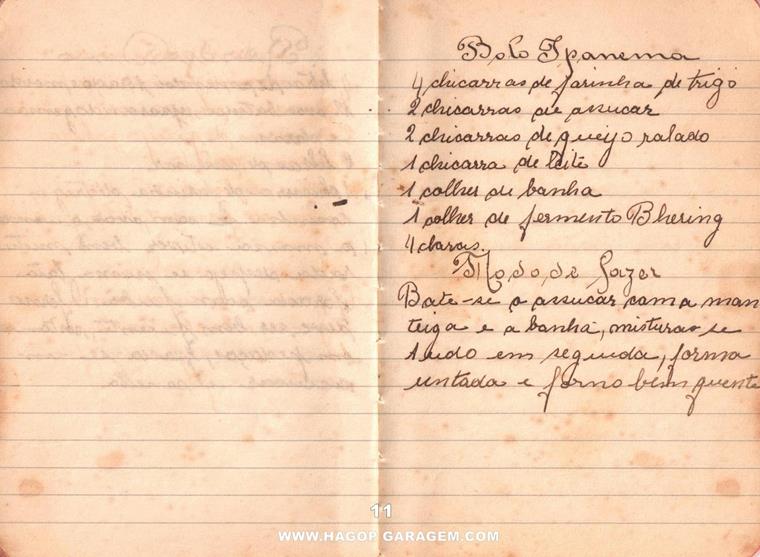 Bolo Ipanema
4 chicarras de farinha de trigo
2 chicarras de assucar
2 chicarras de queijo ralado
1 chicarra de leite
1 colher de banha
1 colher de fermento Bhering
4 claras.
Modo de fazer
Bate-se o assucar com a man
teiga e a banha, misturas se
tudo em seguida, forma
untada e forno bem quente
11
WWW.HAGOP GARAGEM.COM